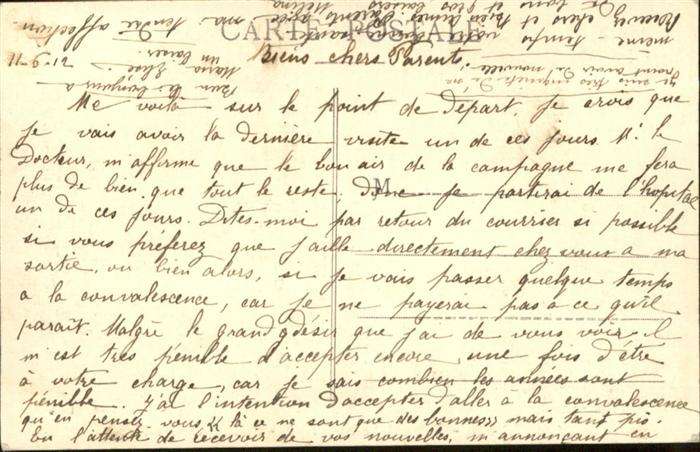 CARTE POSTALE
11-9-12
Biens chers Parents
Me voilà sur le point de départ, je crois que
je vais avoir la dernière visite un de ces jours. Mr le
Docteur, m'affirme que le bon air de la campagne me fera
plus de bien que tout le reste, donc je partirai de l'hopital
un de ces jours. Dites-moi par retour du courrier si possible
si vous préferez que j'aille directement chez vous a ma
sortie, ou bien alors, si je vais passer quelque temps
a la convalescence, car je ne payerai pas à ce qu'il
parait. Malgré le grand désir que j'ai de vous voir il
m'est très pénible d'accepter encore une fois d'être
à votre charge, car je sais combien les années sont
pénible. J'ai l'intention d'accepter d'aller a la convalescence
qu'en pensez-vous là ce ne sont que des bonnes mais tant pis.
En l'attente de recevoir de vos nouvelles, m'annonçant en
même temps
Recevez chers et bien aimés parents
ma tendre affection.
un baiser.